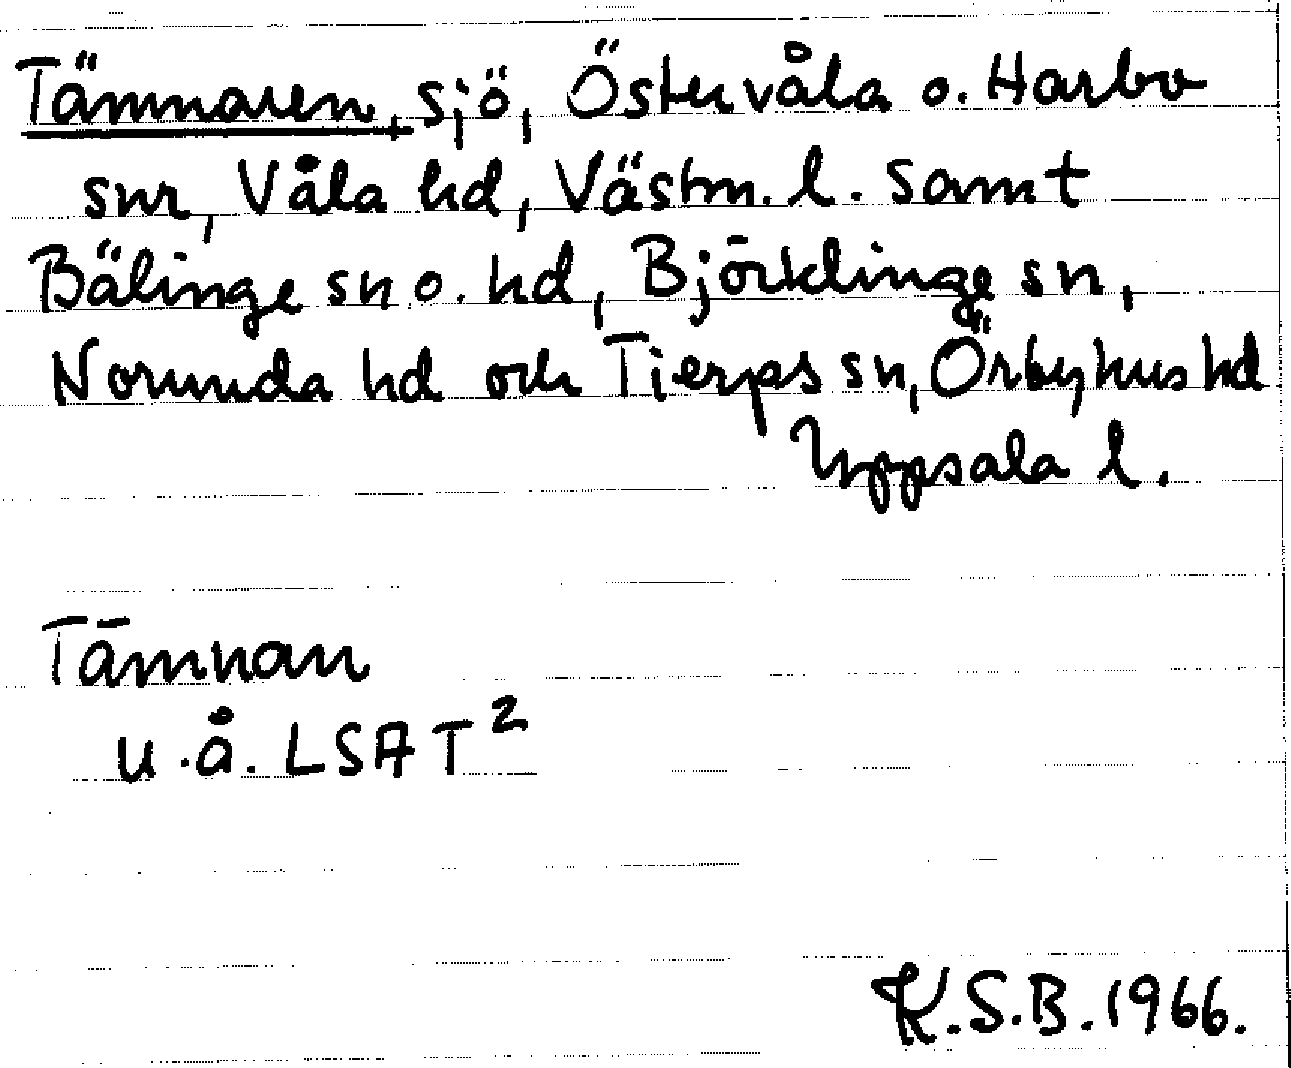 Tämnaren, sjö, Östervåla o. Harbo
snr, Våla hd, Västm. l. samt
Bälinge sn o. hd, Björklinge sn,
Norunda hd och Tierps sn, Örbyhus hd
Uppsala l.
Tämnan
u.å. LSÄT²
K.S.B. 1966.